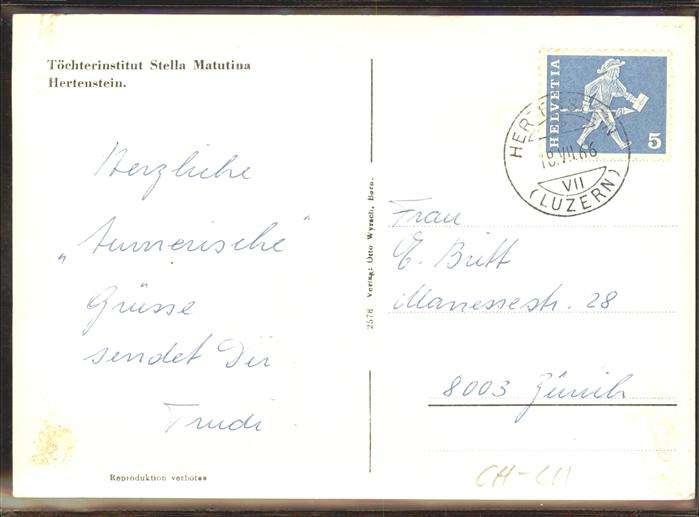 Töchterinstitut Stella Matutina
Hertenstein.
Herzliche
„Turnerische"
Grüsse
sendet Dir
Trudi
Reproduktion verboten
2576 Verlag: Otto Wyrsch, Bern.
HELVETIA
5
18.VII.66
VII
(LUZERN)
Frau
E. Britt
Manessestr. 28
8003 Zürich